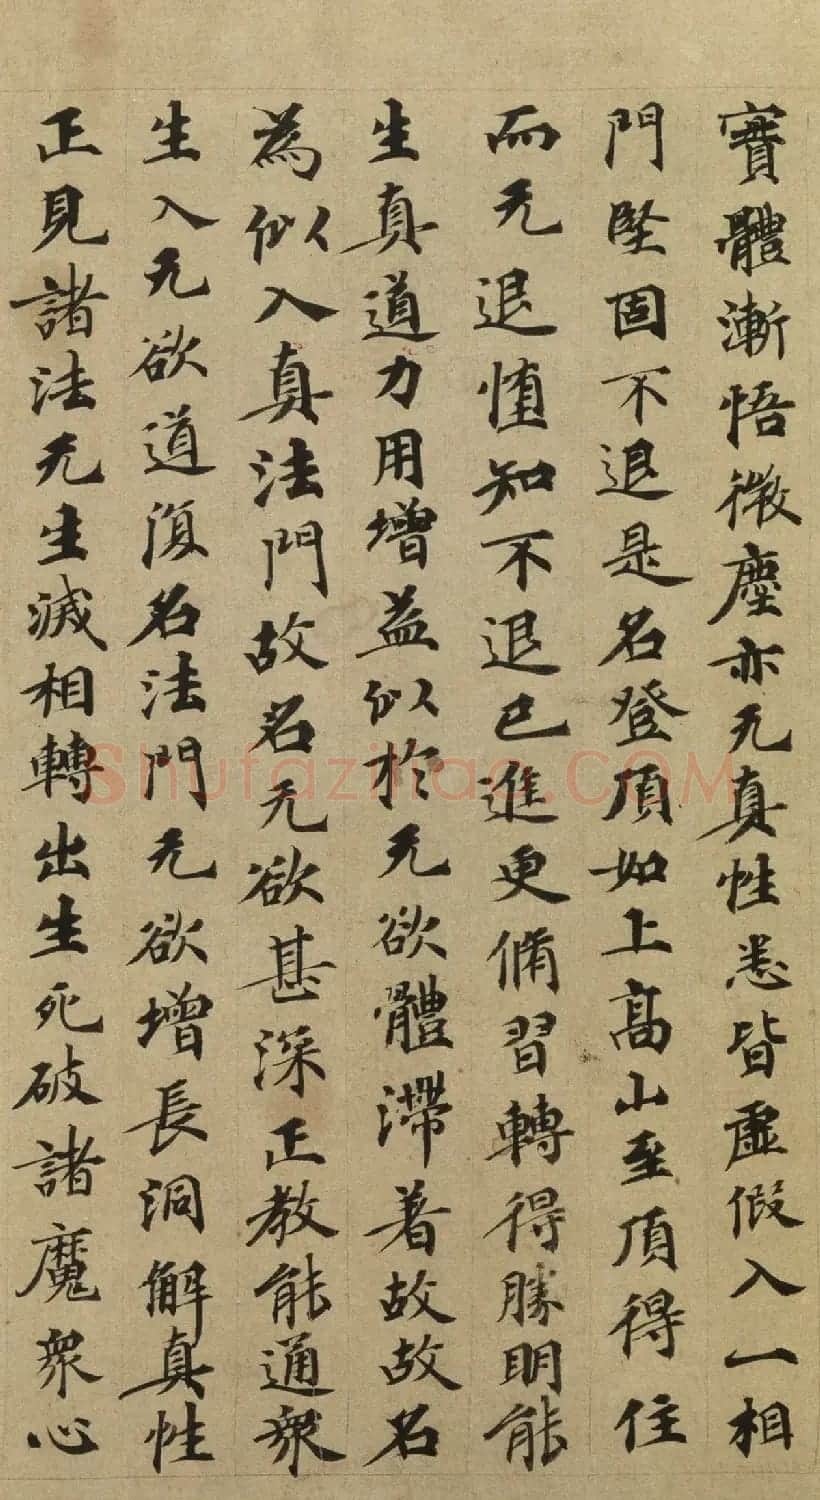 實體漸悟微塵亦无真性悉皆虛假入一相
門堅固不退是名登頂如上高山至頂得住
而无退慎知不退已進更脩習轉得勝明能
生真道力用增益似於无欲體滯著故故名
為似入真法門故名无欲甚深正教能通衆
生入无欲道復名法門无欲增長洞解真性
正見諸法无生滅相轉出生死破諸魔衆心
Shufazihao.COM